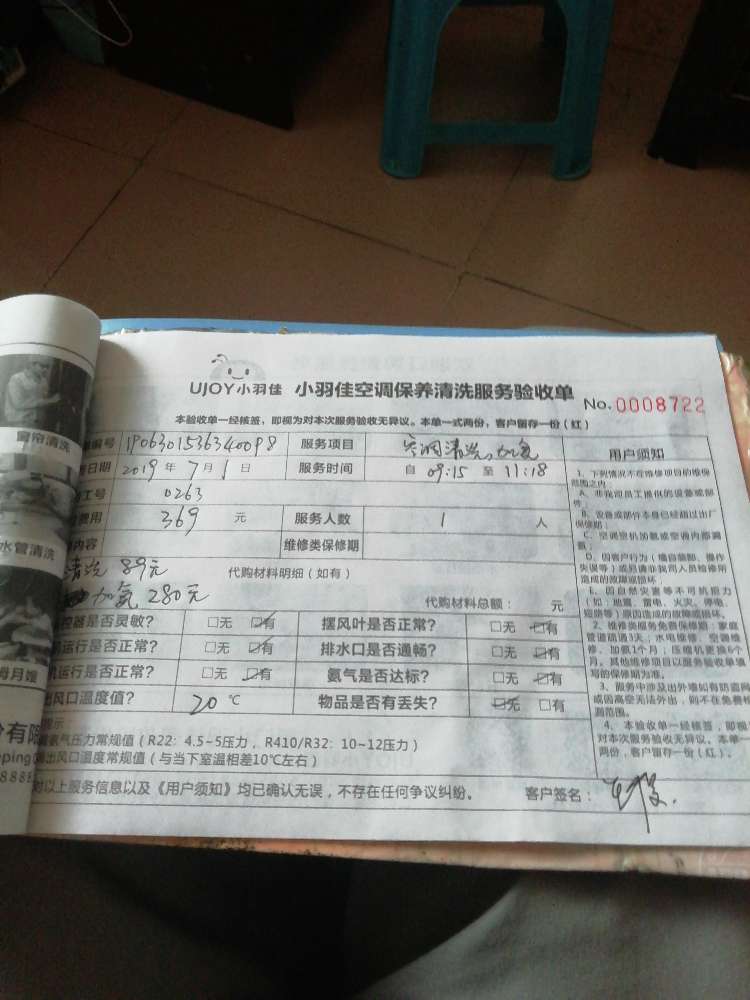 UJOY小羽佳 小羽佳空调保养清洗服务验收单 No.0008722
本验收单一经核签，即视为对本次服务验收无异议。本单一式两份，客户留存一份（红）
编号 1906301536340098 服务项目 空调清洗，加氨
日期 2019年7月1日 服务时间 自 09:15 至 11:18
工号 0263
费用 369 元 服务人数 1 人
内容 维修类保修期
清洗 89元 代购材料明细（如有）
加氨 280元 代购材料总额： 元
控器是否灵敏? □无 □有 摆风叶是否正常? □无 □有
机运行是否正常? □无 □有 排水口是否通畅? □无 □有
机运行是否正常? □无 □有 氨气是否达标? □无 □有
出风口温度值? 20 ℃ 物品是否有丢失? □无 □有
提示
氨气压力常规值（R22：4.5~5压力，R410/R32：10~12压力）
出风口温度常规值（与当下室温相差10℃左右）
对以上服务信息以及《用户须知》均已确认无误，不存在任何争议纠纷。 客户签名：
用户须知
1、下列情况不在维修项目的维保
范围之内
A、非我司员工操作的设备或部
件
B、设备或部件本身已经超过出厂
保修期；
C、空调空机加氨或空调内部漏
D、因客户行为（擅自装卸、操作
失误等）或另请非我司人员检修所
造成的故障或损坏；
E、因自然灾害等不可抗拒力
（如：地震、雷电、火灾、停电、
短路等）原因造成的故障或损坏。
2、维修类服务免费保修期：家庭
管道疏通3天，水电维修、空调维
修、加氨1个月；压缩机更换6个
月。其他维修项目以服务验收单填
写的保修期为准。
3、服务中涉及出外墙如有防盗网
或因高空无法外出，则不在免费检
测范围。
4、本验收单一经核签，即视为
对本次服务验收无异议。本单一式
两份，客户留存一份（红）。
窗帘清洗
水管清洗
母月嫂
份有限